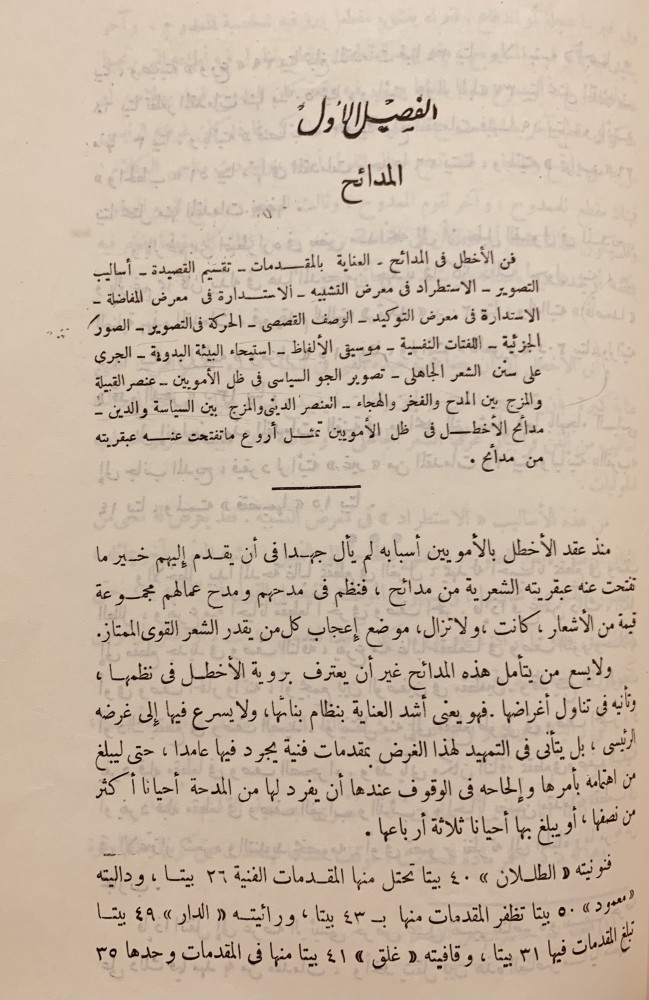 الفصل الأول
المدائح
فن الأخطل فى المدائح - العناية بالمقدمات - تقسيم القصيدة - أساليب
التصوير - الاستطراد فى معرض التشبيه - الاستدارة فى معرض المفاضلة -
الاستدارة فى معرض التوكيد - الوصف القصصى - الحركة فى التصوير - الصور
الجزئية - اللفتات النفسية - موسيقى الألفاظ - استيحاء البيئة البدوية - الجرى
على سنن الشعر الجاهلى - تصوير الجو السياسى فى ظل الأمويين - عنصر القبيلة
والمزج بين المدح والفخر والهجاء - العنصر الدينى والمزج بين السياسة والدين -
مدائح الأخطل فى ظل الأمويين تمثل أروع ما تفتحت عنه عبقريته
من مدائح .
منذ عقد الأخطل بالأمويين أسبابه لم يأل جهدا فى أن يقدم إليهم خير ما
تفتحت عنه عبقريته الشعرية من مدائح ، فنظم فى مدحهم ومدح عمالهم مجموعة
قيمة من الأشعار ، كانت ، ولا تزال، موضع إعجاب كل من يقدر الشعر القوى الممتاز.
ولا يسع من يتأمل هذه المدائح غير أن يعترف بروية الأخطل فى نظمها ،
وتأنيه فى تناول أغراضها . فهو يعنى أشد العناية بنظام بنائها، ولا يسرع فيها إلى غرضه
الرئيسى ، بل يتأنى فى التمهيد لهذا الغرض بمقدمات فنية يجود فيها عامدا ، حتى ليبلغ
من اهتمامه بأمرها وإلحاحه فى الوقوف عندها أن يفرد لها من المدحة أحيانا أكثر
من نصفها ، أو يبلغ بها أحيانا ثلاثة أرباعها .
فنونيته « الطللان » ٤٠ بيتا تحتل منها المقدمات الفنية ٢٦ بيتا ، وداليته
« معمود » ٥٠ بيتا تظفر المقدمات منها بـ ٤٣ بيتا ، ورائيته « الدار » ٤٩ بيتا
تبلغ المقدمات فيها ٣١ بيتا ، وقافيته « غلق » ٤١ بيتا منها فى المقدمات وحدها ٣٥